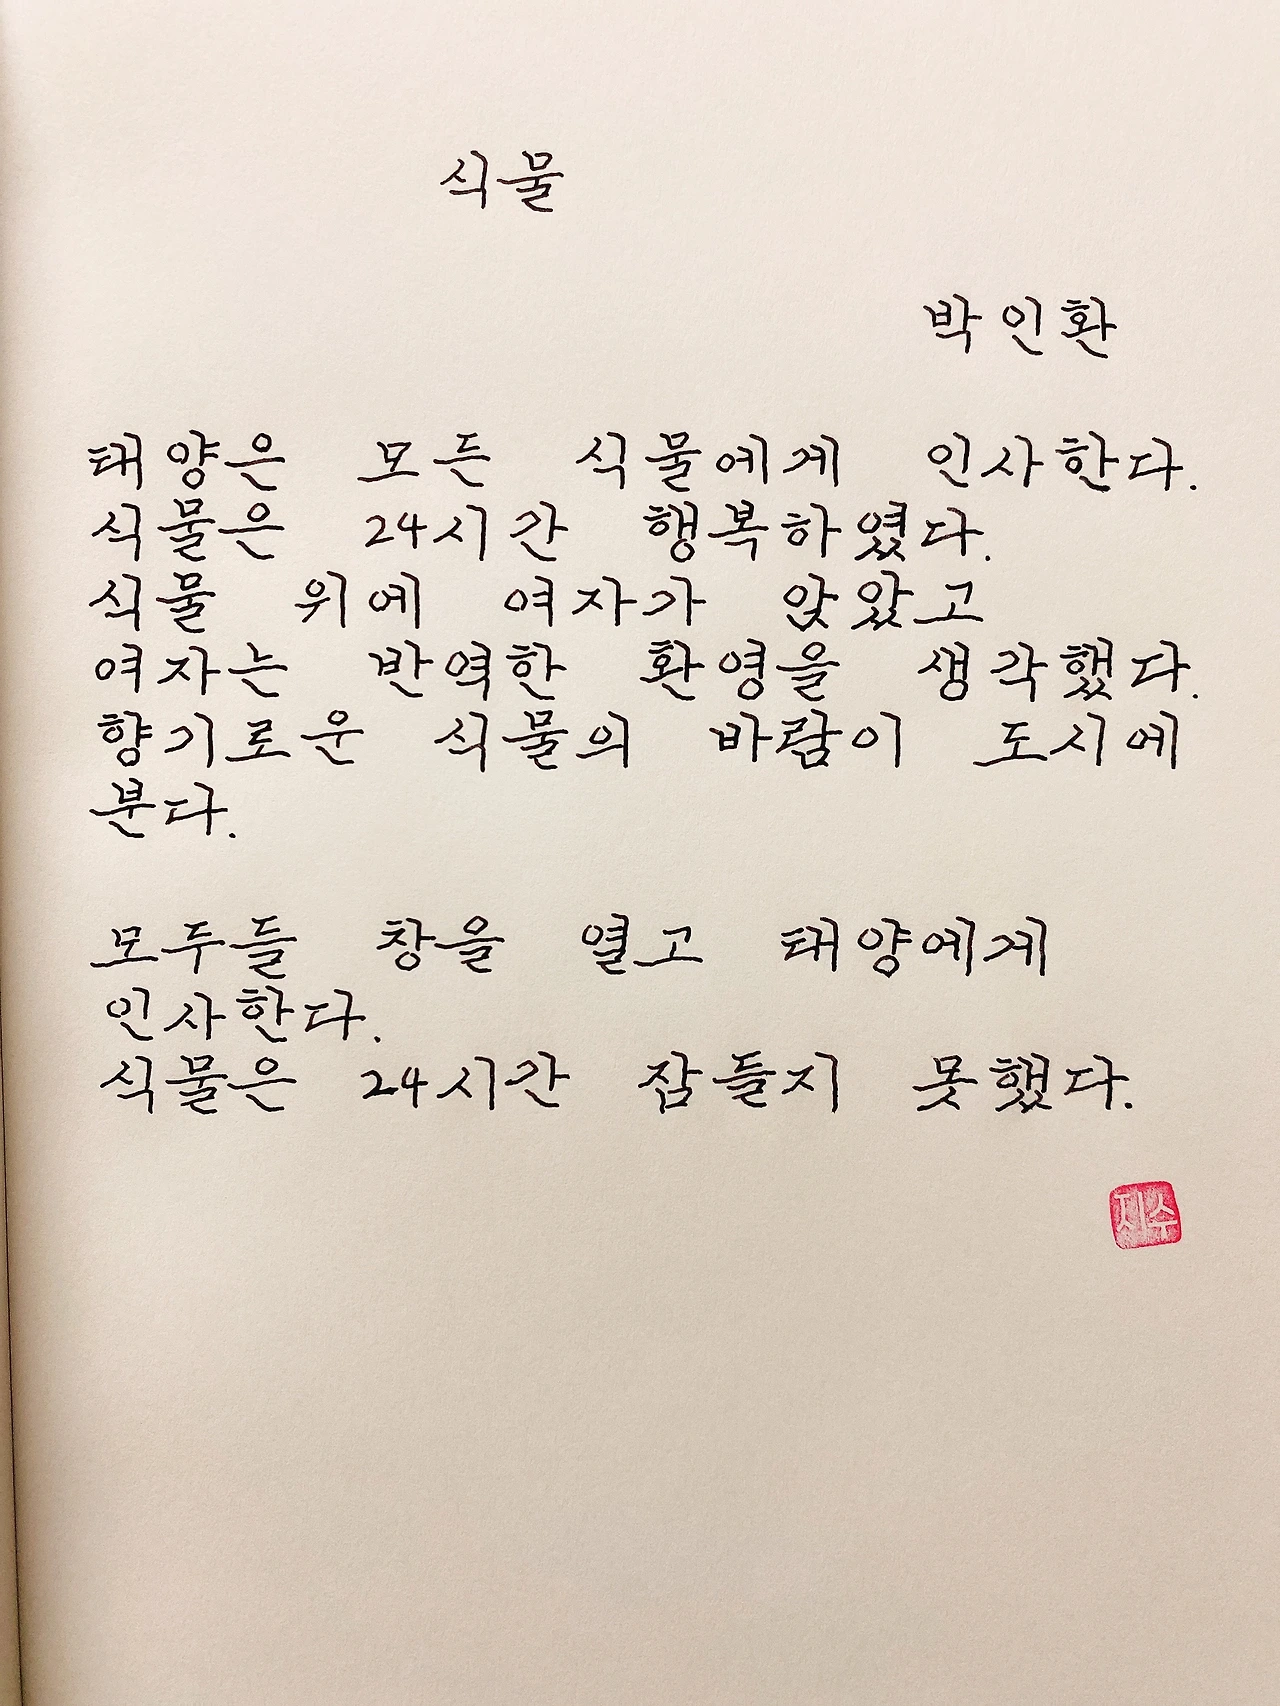 식물
박인환
태양은 모든 식물에게 인사한다.
식물은 24시간 행복하였다.
식물 위에 여자가 앉았고
여자는 반역한 환영을 생각했다.
향기로운 식물의 바람이 도시에
분다.
모두들 창을 열고 태양에게
인사한다.
식물은 24시간 잠들지 못했다.
지수